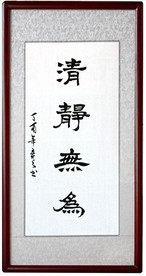 清靜無為
丁酉年